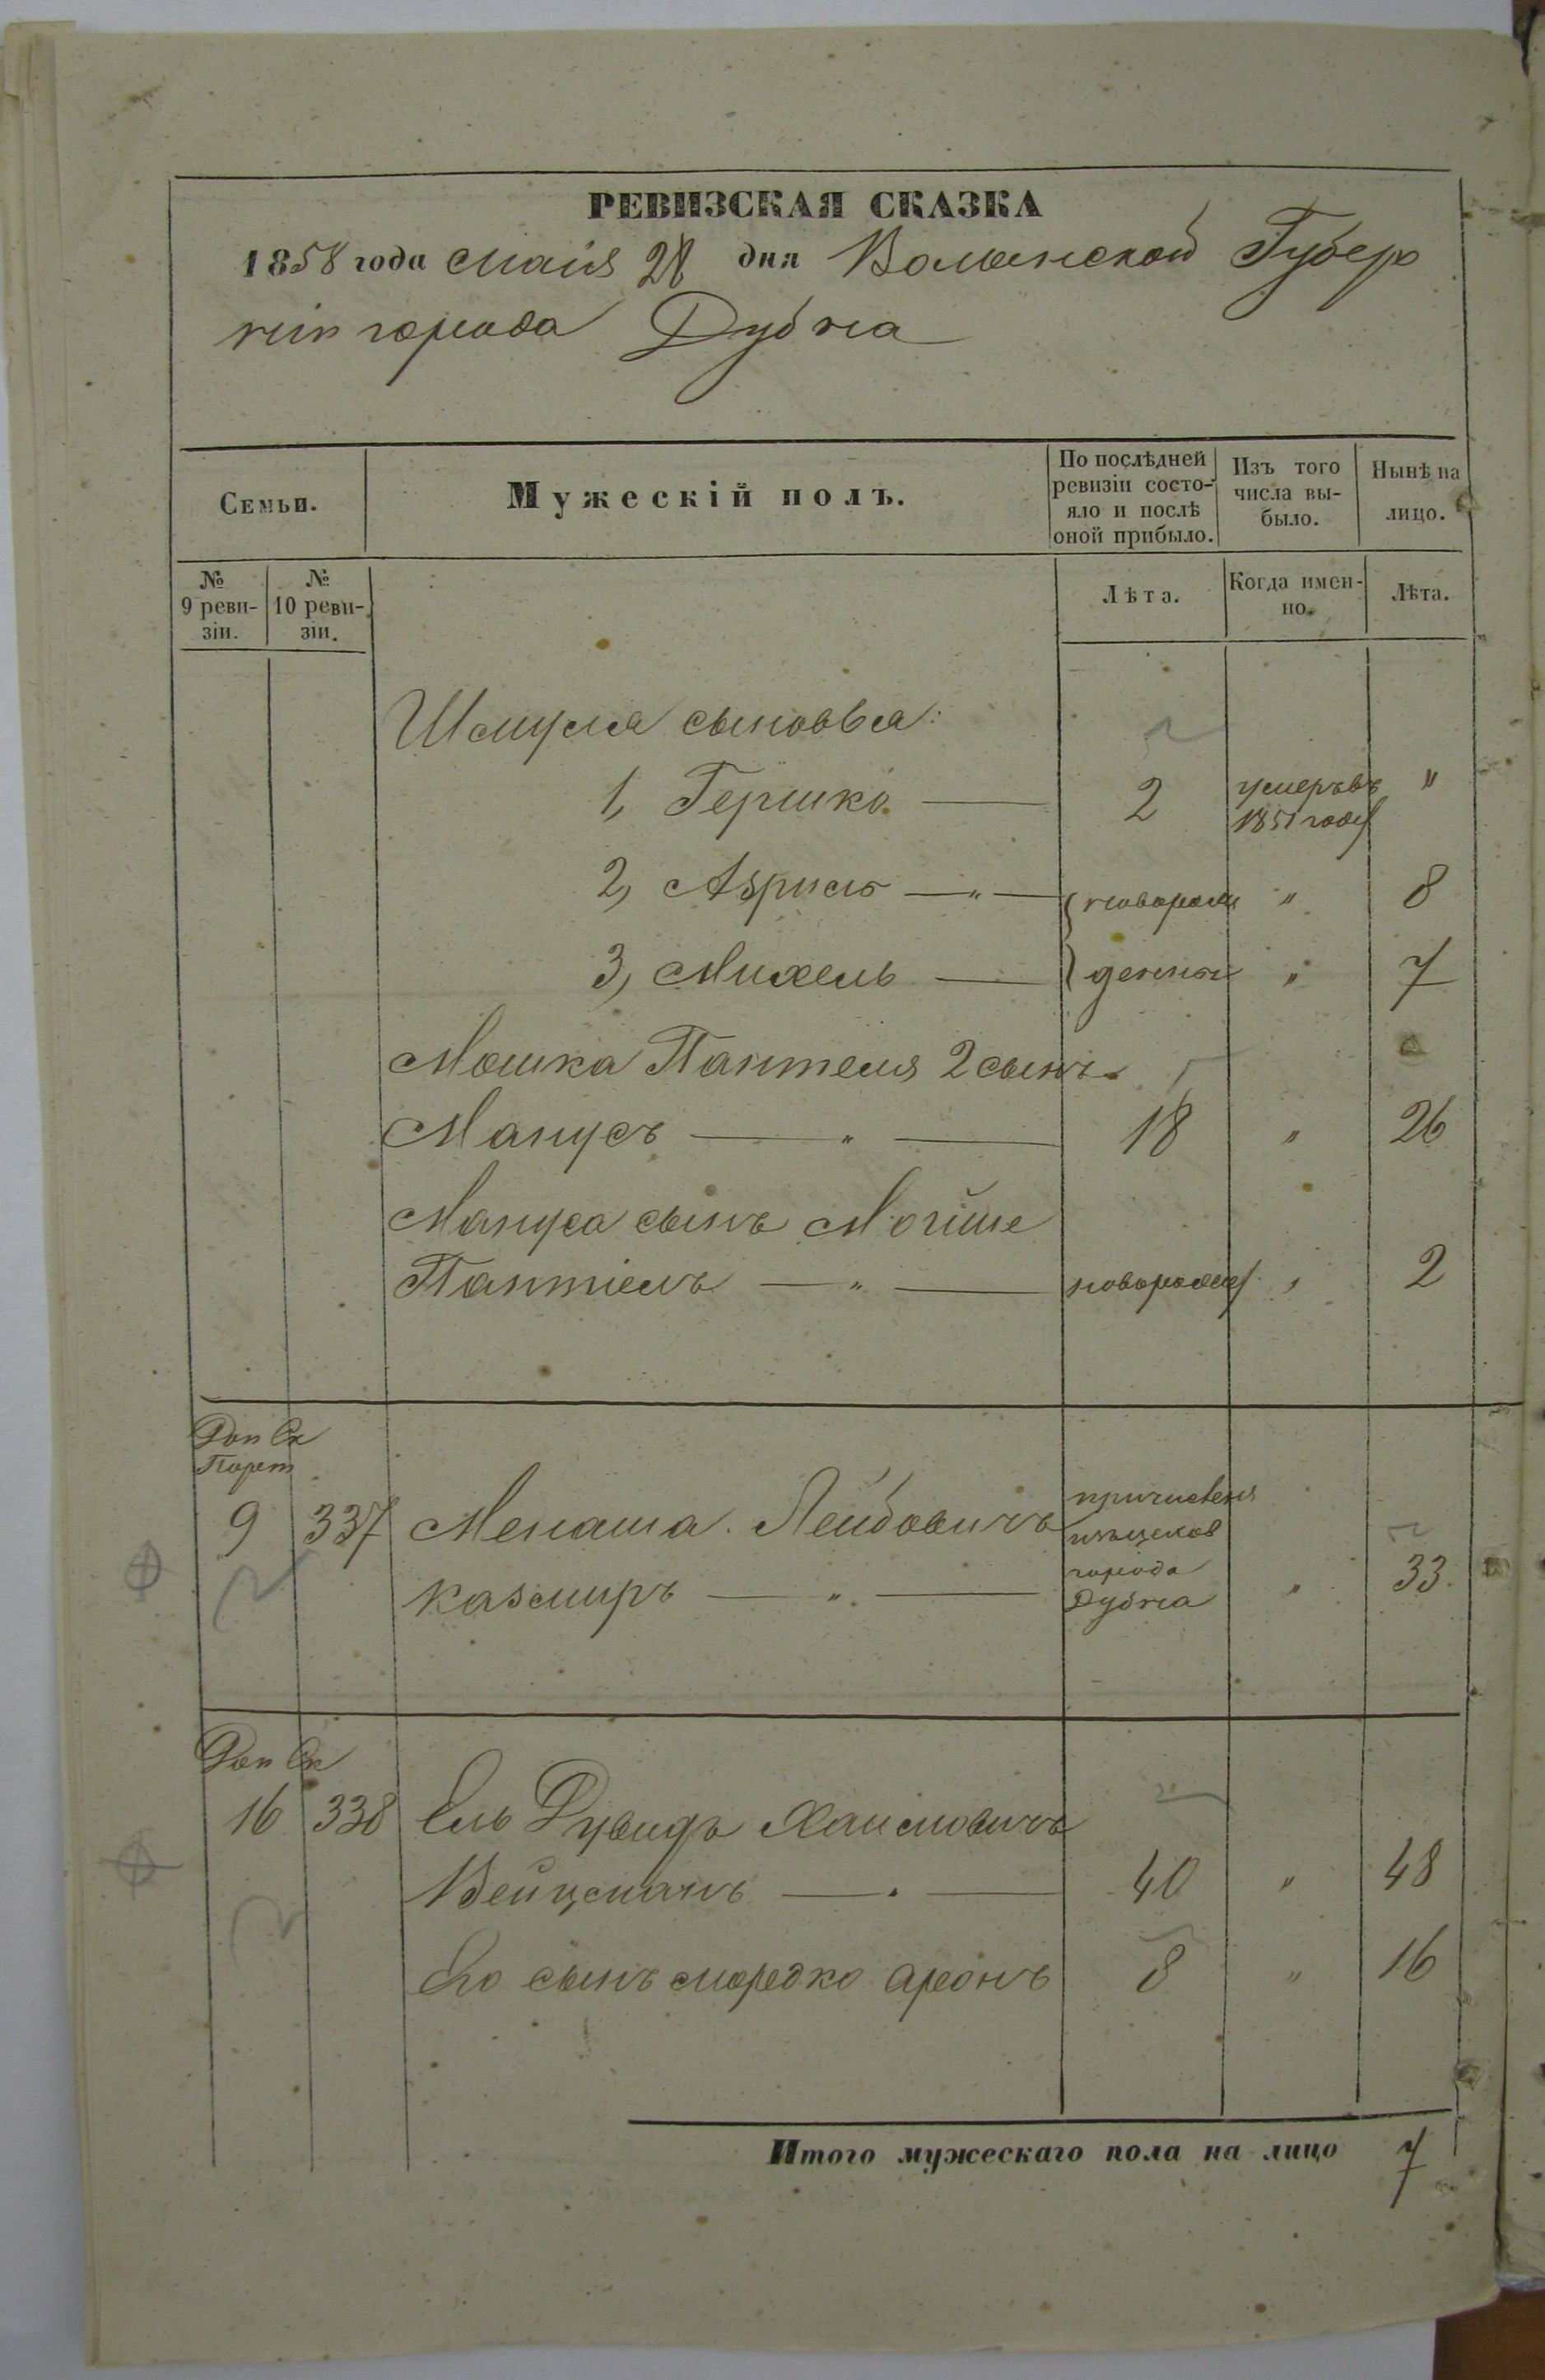 РЕВИЗСКАЯ СКАЗКА
1858 года Маія 28 дня Волынской Губер
ніи города Дубна
Семьи.
Мужескій полъ.
По послѣдней ревизіи состояло и послѣ оной прибыло.
Изъ того числа выбыло.
Нынѣ на лицо.
№ 9 ревизіи.
№ 10 ревизіи.
Лѣта.
Когда именно.
Лѣта.
Шмуля сыновья:
1, Гершко — 2 умеръ въ 1851 году "
2, — " — новорож " 8
3, Михель — денные " 7
Мошка Пантеля 2 сынъ
Манусъ — " — 18 " 26
Мануса сынъ Мойше
Пантіель — " — новорожд " 2
Доп Ск
9 337 Менаша Лейбовичъ
Казмиръ — " — города Дубна " 33.
Доп Ск
16 338 Ель Дувидъ Хаимовичъ
Вейцманъ — " — 40 " 48
Его сынъ Мордко Аронъ 8 " 16
Итого мужескаго пола на лицо 7